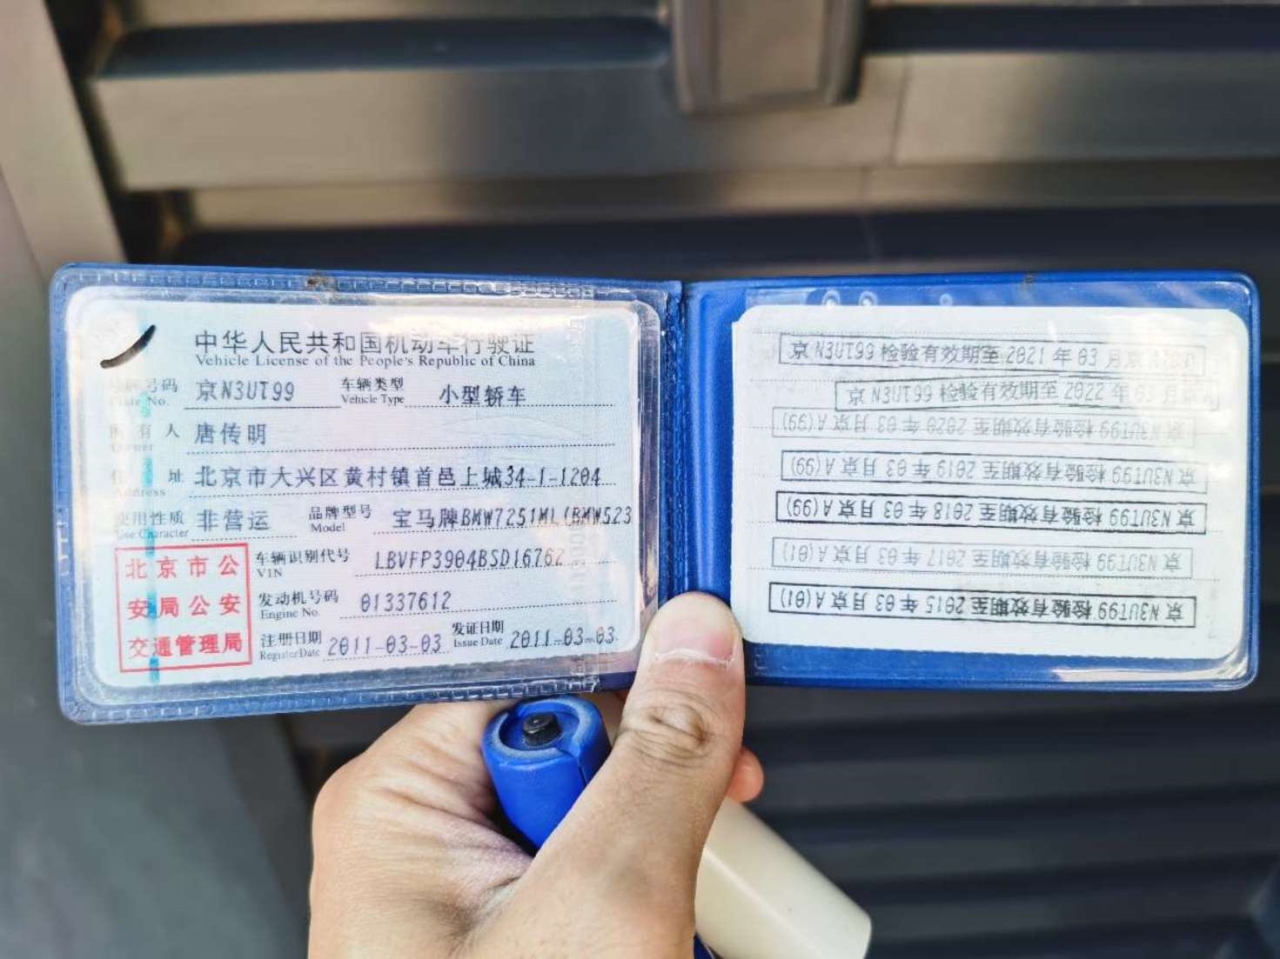 中华人民共和国机动车行驶证
Vehicle License of the People's Republic of China
号牌号码 京N3UT99 车辆类型 小型轿车
Plate No. Vehicle Type
所有人 唐传明
Owner
住址 北京市大兴区黄村镇首邑上城34-1-1204
Address
使用性质 非营运 品牌型号 宝马牌BMW7251ML(BMW523
Use Character Model
北京市公
安局公安
交通管理局
车辆识别代号 LBVFP3904BSD16762
VIN
发动机号码 01337612
Engine No.
注册日期 2011-03-03 发证日期 2011-03-03
Register Date Issue Date
京N3UT99 检验有效期至 2021 年 03 月
京N3UT99 检验有效期至 2022 年 03 月
京N3UT99 检验有效期至 2020 年 03 月京A(99)
京N3UT99 检验有效期至 2019 年 03 月京A(99)
京N3UT99 检验有效期至 2018 年 03 月京A(99)
京N3UT99 检验有效期至 2017 年 03 月京A(01)
京N3UT99 检验有效期至 2015 年 03 月京A(01)